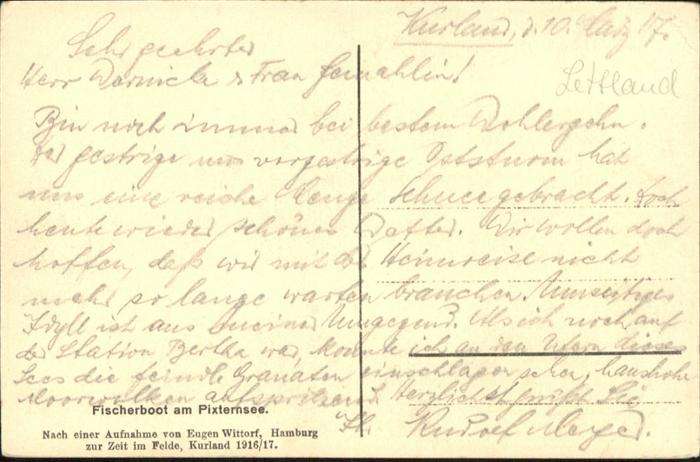 Kurland, d. 10. März 17.
Lettland
Sehr geehrter
Herr Warnicke & Frau Gemahlin!
Bin noch immer bei bestem Wohlergehn.
Der gestrige und vorgestrige Oststurm hat
uns eine reiche Menge Schnee gebracht. Doch
heute wieder schönes Wetter. Wir wollen doch
hoffen, daß wir mit der Heimreise nicht
mehr so lange warten brauchen. Umseitiges
Idyll ist aus meiner Umgegend. Als ich noch auf
der Station Bertha war, konnte ich an den Ufern dieses
Sees die feindl. Granaten einschlagen sehen, haushohe
Moorwolken aufspritzend. Herzlichst grüßt Sie
Ihr Rudolf Meyer.
Fischerboot am Pixternsee.
Nach einer Aufnahme von Eugen Wittorf, Hamburg
zur Zeit im Felde, Kurland 1916/17.